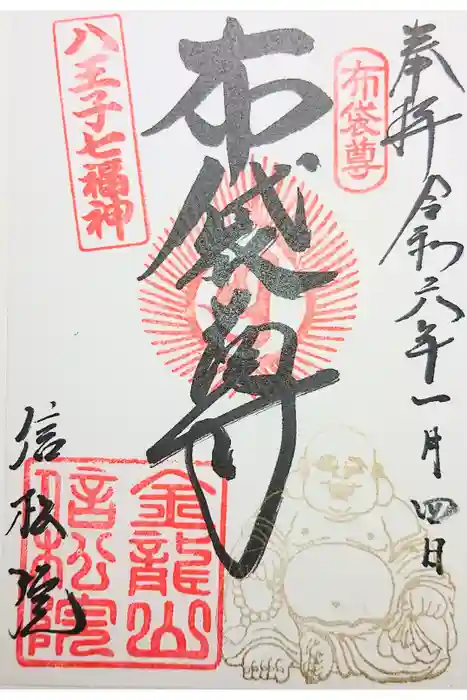 奉拝
令和六年一月四日
布袋尊
布袋尊
八王子七福神
信松院
金龍山
信松院